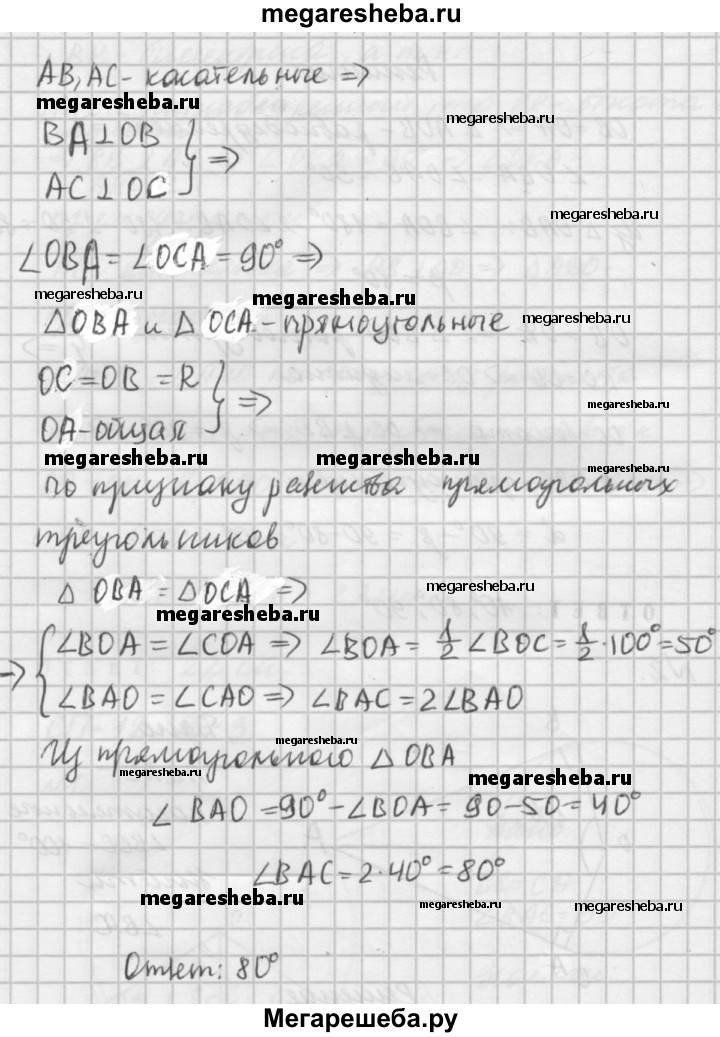 megaresheba.ru
AB, AC - касательные ⇒
megaresheba.ru
megaresheba.ru
BA ⊥ OB
AC ⊥ OC } ⇒
megaresheba.ru
∠OBA = ∠OCA = 90° ⇒
megaresheba.ru
megaresheba.ru
△OBA и △OCA - прямоугольные
megaresheba.ru
OC = OB = R
OA - общая } ⇒
megaresheba.ru
megaresheba.ru
megaresheba.ru
megaresheba.ru
по признаку равенства прямоугольных
треугольников
△ OBA = △OCA ⇒
megaresheba.ru
megaresheba.ru
⇒ { ∠BOA = ∠COA ⇒ ∠BOA = 1/2 ∠BOC = 1/2 · 100° = 50°
∠BAO = ∠CAO ⇒ ∠BAC = 2∠BAO
megaresheba.ru
Из прямоугольного △ OBA
megaresheba.ru
megaresheba.ru
∠ BAO = 90° - ∠BOA = 90 - 50 = 40°
∠BAC = 2 · 40° = 80°
megaresheba.ru
megaresheba.ru
megaresheba.ru
Ответ: 80°
Мегарешеба.ру